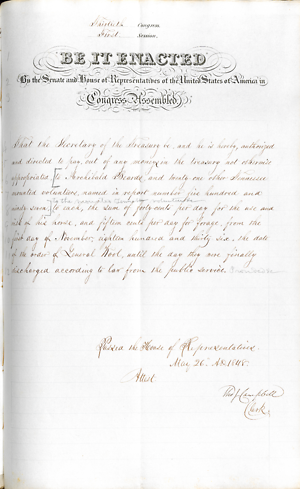 Thirtieth Congress.
First Session.
BE IT ENACTED
By the Senate and House of Representatives of the United States of America in
Congress Assembled,
That the Secretary of the Treasury be, and he is hereby, authorized
and directed to pay, out of any money in the treasury not otherwise
appropriated, to Archibald and ninety one other Tennessee
mounted volunteers, named in report number five hundred and
to each, the sum of forty cents per day for the use and
risk of his horse, and fifteen cents per day for forage, from the
first day of November, eighteen hundred and thirty six, the date
of the order of General Wool, until the day they were finally
discharged according to law from the public service.
Passed the House of Representatives
May 26. AD 1848.
Attest.
Tho J Campbell
Clerk.